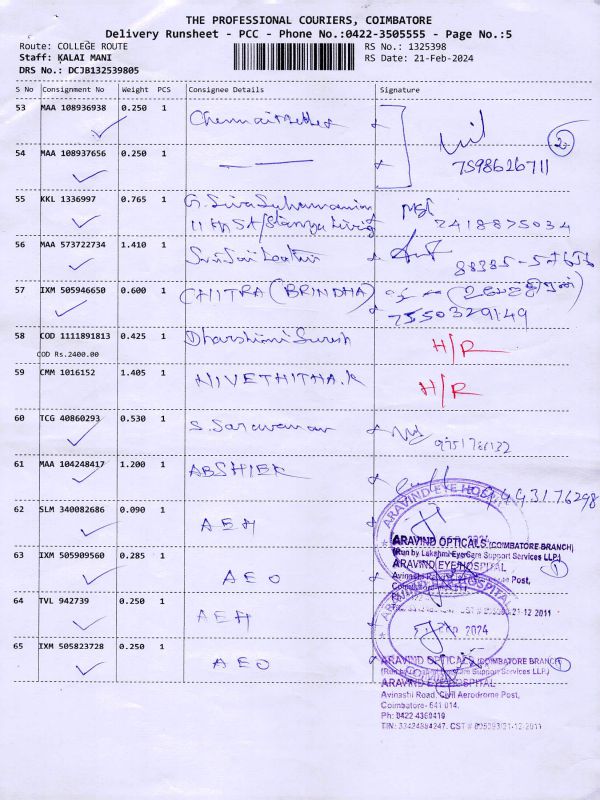 THE PROFESSIONAL COURIERS, COIMBATORE
Delivery Runsheet - PCC - Phone No.:0422-3505555 - Page No.:5
Route: COLLEGE ROUTE RS No.: 1325398
Staff: KALAI MANI RS Date: 21-Feb-2024
DRS No.: DCJB132539805
S No Consignment No Weight PCS Consignee Details Signature
53 MAA 108936938 0.250 1
54 MAA 108937656 0.250 1 7598626711
55 KKL 1336997 0.765 1 G. Siva Subramanian
7418875034
56 MAA 573722734 1.410 1
57 IXM 505946650 0.600 1 CHITRA (BRINDHA)
7550329149
58 COD 1111891813 0.425 1 Dharshini Suresh H/R
COD Rs.2400.00
59 CMM 1016152 1.405 1 NIVETHITHA.K H/R
60 TCG 40860293 0.530 1 S. Saravanan
61 MAA 104248417 1.200 1 ABSHIEK
9443176298
62 SLM 340082686 0.090 1 AEH
ARAVIND EYE HOSPITAL
ARAVIND OPTICALS (COIMBATORE BRANCH)
(Run by Lakshmi EyeCare Support Services LLP.)
63 IXM 505909560 0.285 1 AEO
ARAVIND EYE HOSPITAL
64 TVL 942739 0.250 1 AEH
2024
65 IXM 505823728 0.250 1 AEO
ARAVIND OPTICALS (COIMBATORE BRANCH)
Support Services LLP.)
ARAVIND EYE HOSPITAL
Avinashi Road, Civil Aerodrome Post,
Coimbatore- 641 014.
Ph: 0422 4360419